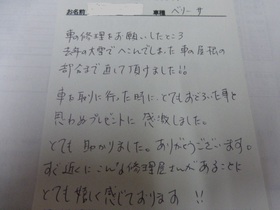 お名前 車種 ベリーサ
車の修理をお願いしたところ
去年の大雪でへこんでしまった車の屋根の
部分まで直して頂けました!!
車を取りに行った時に、とてもおどろいた事と
思わぬプレゼントに感激しました。
とても助かりました。ありがとうございます。
すぐ近くにこんな修理屋さんがあることを
とても嬉しく感じております!!